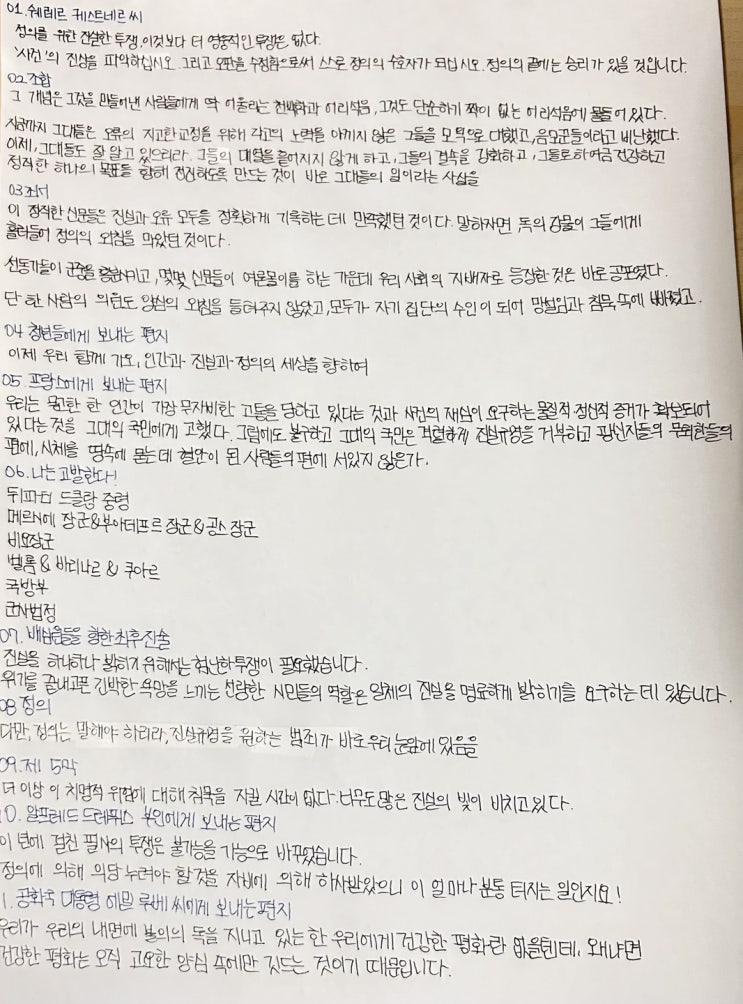 01. 쉐레르 케스트네르 씨
정의를 위한 진실한 투쟁, 이것보다 더 영웅적인 투쟁은 없다.
'사건'의 진상을 파악하십시오. 그리고 오판을 수정함으로써 스스로 정의의 수호자가 되십시오. 정의의 끝에는 승리가 있을 것입니다.
02. 조합
그 개념은 그것을 만들어낸 사람들에게 딱 어울리는 천박함과 어리석음, 그것도 단순하기 짝이 없는 어리석음에 물들어 있다.
지금까지 그대들은 오류의 지고한 교정을 위해 각고의 노력을 아끼지 않은 그들을 모욕으로 대했고, 음모꾼들이라고 비난했다.
이제, 그대들도 잘 알고 있으리라. 그들의 대열을 흩어지지 않게 하고, 그들의 결속을 강화하고, 그들로 하여금 건강하고
정직한 하나의 목표를 향해 전진하도록 만드는 것이 바로 그대들의 일이라는 사실을
03. 조서
이 정직한 신문들은 진실과 오류 모두를 정확하게 기록하는 데 만족했던 것이다. 말하자면 독의 강물이 그들에게
흘러들어 정의의 외침을 막았던 것이다.
선동가들이 군중을 흥분시키고, 몇몇 신문들이 여론몰이를 하는 가운데 우리 사회의 지배자로 등장한 것은 바로 공포였다.
단 한 사람의 의원도 양심의 외침을 들려주지 않았고, 모두가 자기 집단의 수인이 되어 망설임과 침묵 속에 빠졌고.
04 청년들에게 보내는 편지
이제 우리 함께 가오, 인간과 진실과 정의의 세상을 향하여
05. 프랑스에게 보내는 편지
우리는 무고한 한 인간이 가장 무자비한 고통을 당하고 있다는 것과 사건의 재심이 요구하는 물질적 정신적 증거가 확보되어
있다는 것을 그대의 국민에게 고했다. 그럼에도 불구하고 그대의 국민은 격렬하게 진실규명을 거부하고 광신자들의 무뢰한들의
편에, 시체를 땅속에 묻는 데 혈안이 된 사람들의 편에 서있지 않은가.
06. 나는 고발한다!
뒤파티 드클랑 중령
메르시에 장군&부아데프르 장군&공스 장군
비요장군
벨롬 & 바리나르 & 쿠아르
국방부
군사법정
07. 배심원들을 향한 최후 진술
진실을 하나하나 밝히기 위해서는 험난한 투쟁이 필요했습니다.
위기를 끝내고픈 긴박한 욕망을 느끼는 선량한 시민들의 역할은 일체의 진실을 명료하게 밝히기를 요구하는 데 있습니다.
08 정의
다만, 정의는 말해야 하리라, 진실규명을 원하는 범죄가 바로 우리 눈앞에 있음을
09. 제 5막
더 이상 이 치명적 위험에 대해 침묵을 지킬 시간이 없다. 너무도 많은 진실의 빛이 비치고 있다.
0. 알프레드 드레퓌스 부인에게 보내는 편지
이 년에 걸친 필사의 투쟁은 불가능을 가능으로 바꾸었습니다.
정의에 의해 의당 누려야 할 것을 자비에 의해 하사받았으니 이 얼마나 분통 터지는 일인지요!
1. 공화국 대통령 에밀 루베 씨에게 보내는 편지
우리가 우리의 내면에 불의의 독을 지니고 있는 한 우리에게 건강한 평화란 없을텐데, 왜냐면
건강한 평화는 오직 고요한 양심 속에만 깃드는 것이기 때문입니다.